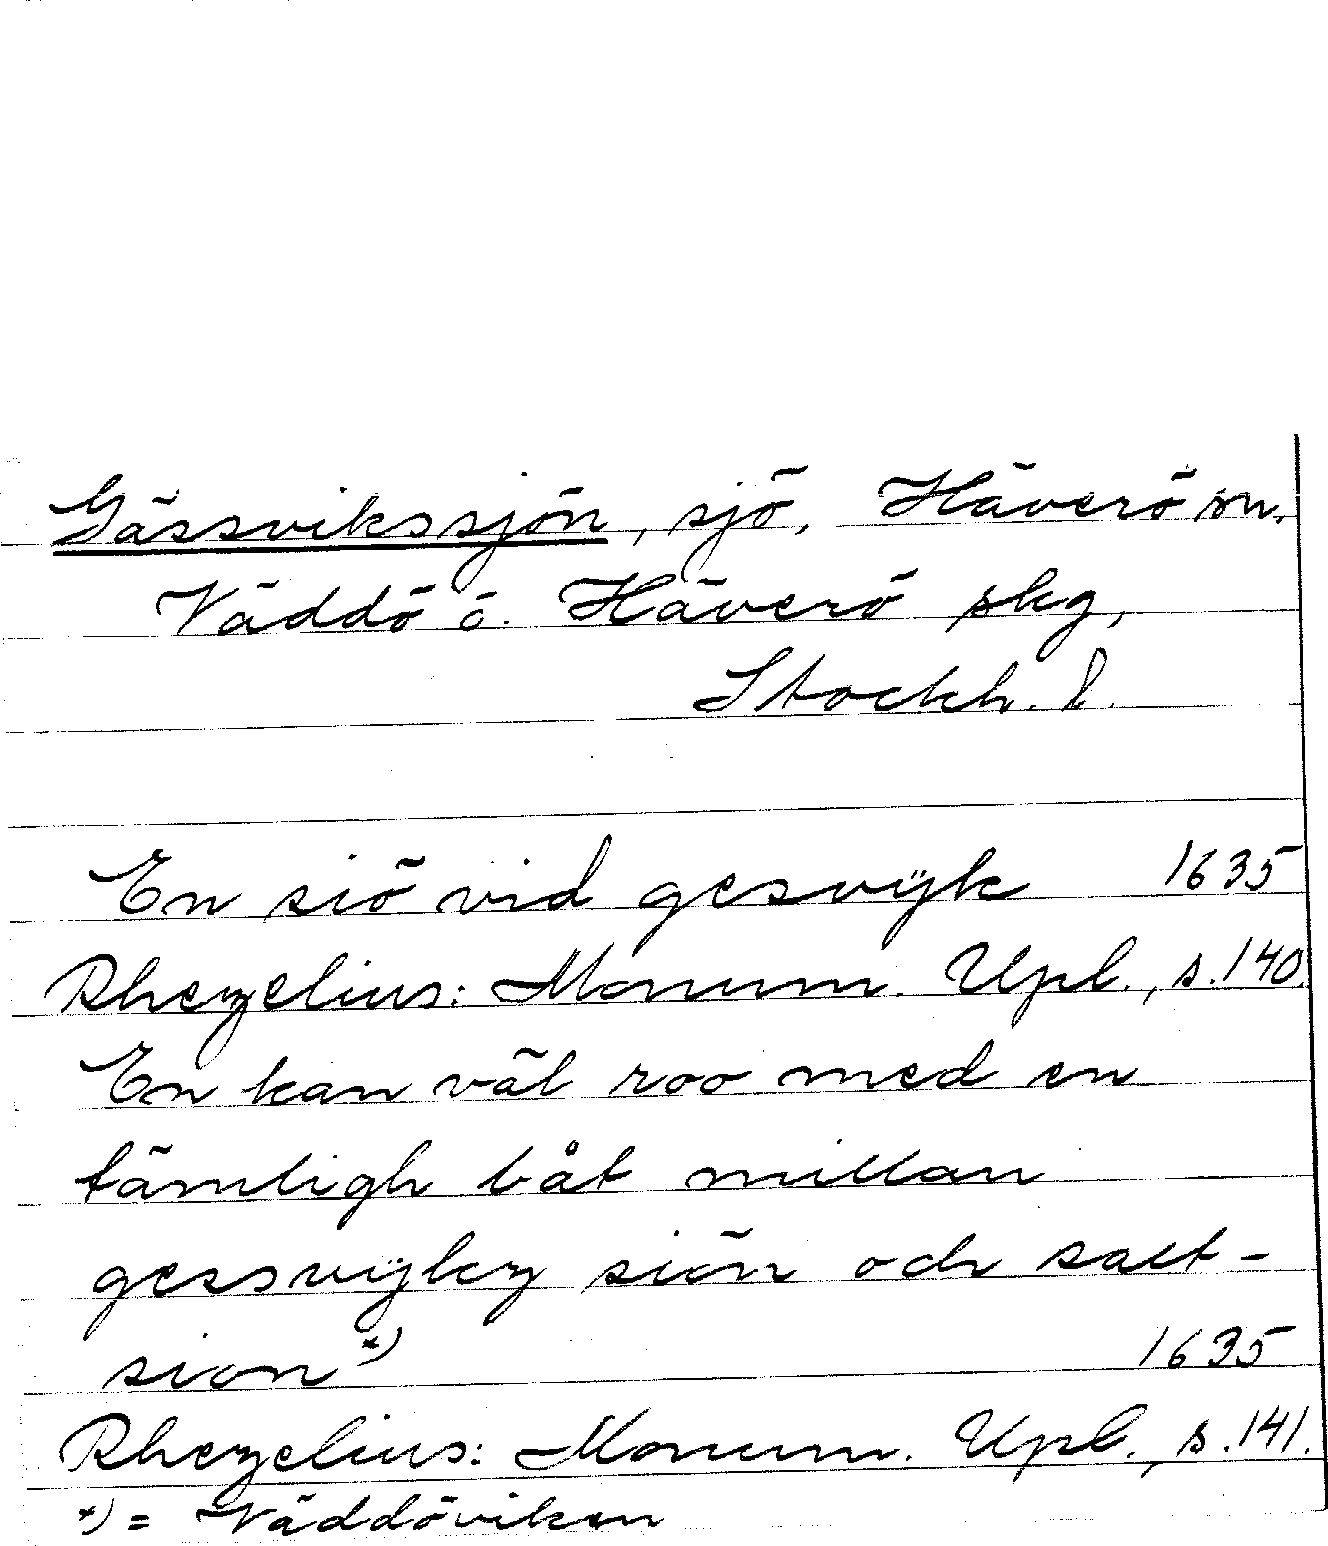 Gässvikssjön, sjö, Häverö sn.
Väddö o. Häverö skg,
Stockh. l.
En siö vid gesvijk 1635
Rhezelius: Monum. Upl., s. 140.
En kan väl roo med en
tämligh båt millan
siön och salt-
sion *) 1635
Rhezelius: Monum. Upl., s. 141.
*) = Väddöviken